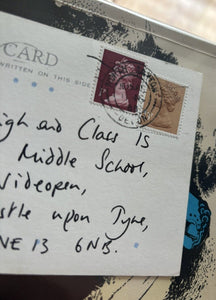 CARD
WRITTEN ON THIS SIDE
igh and Class 1S
Middle School,
ideopen,
stle upon Tyne,
NE 13 6NB.